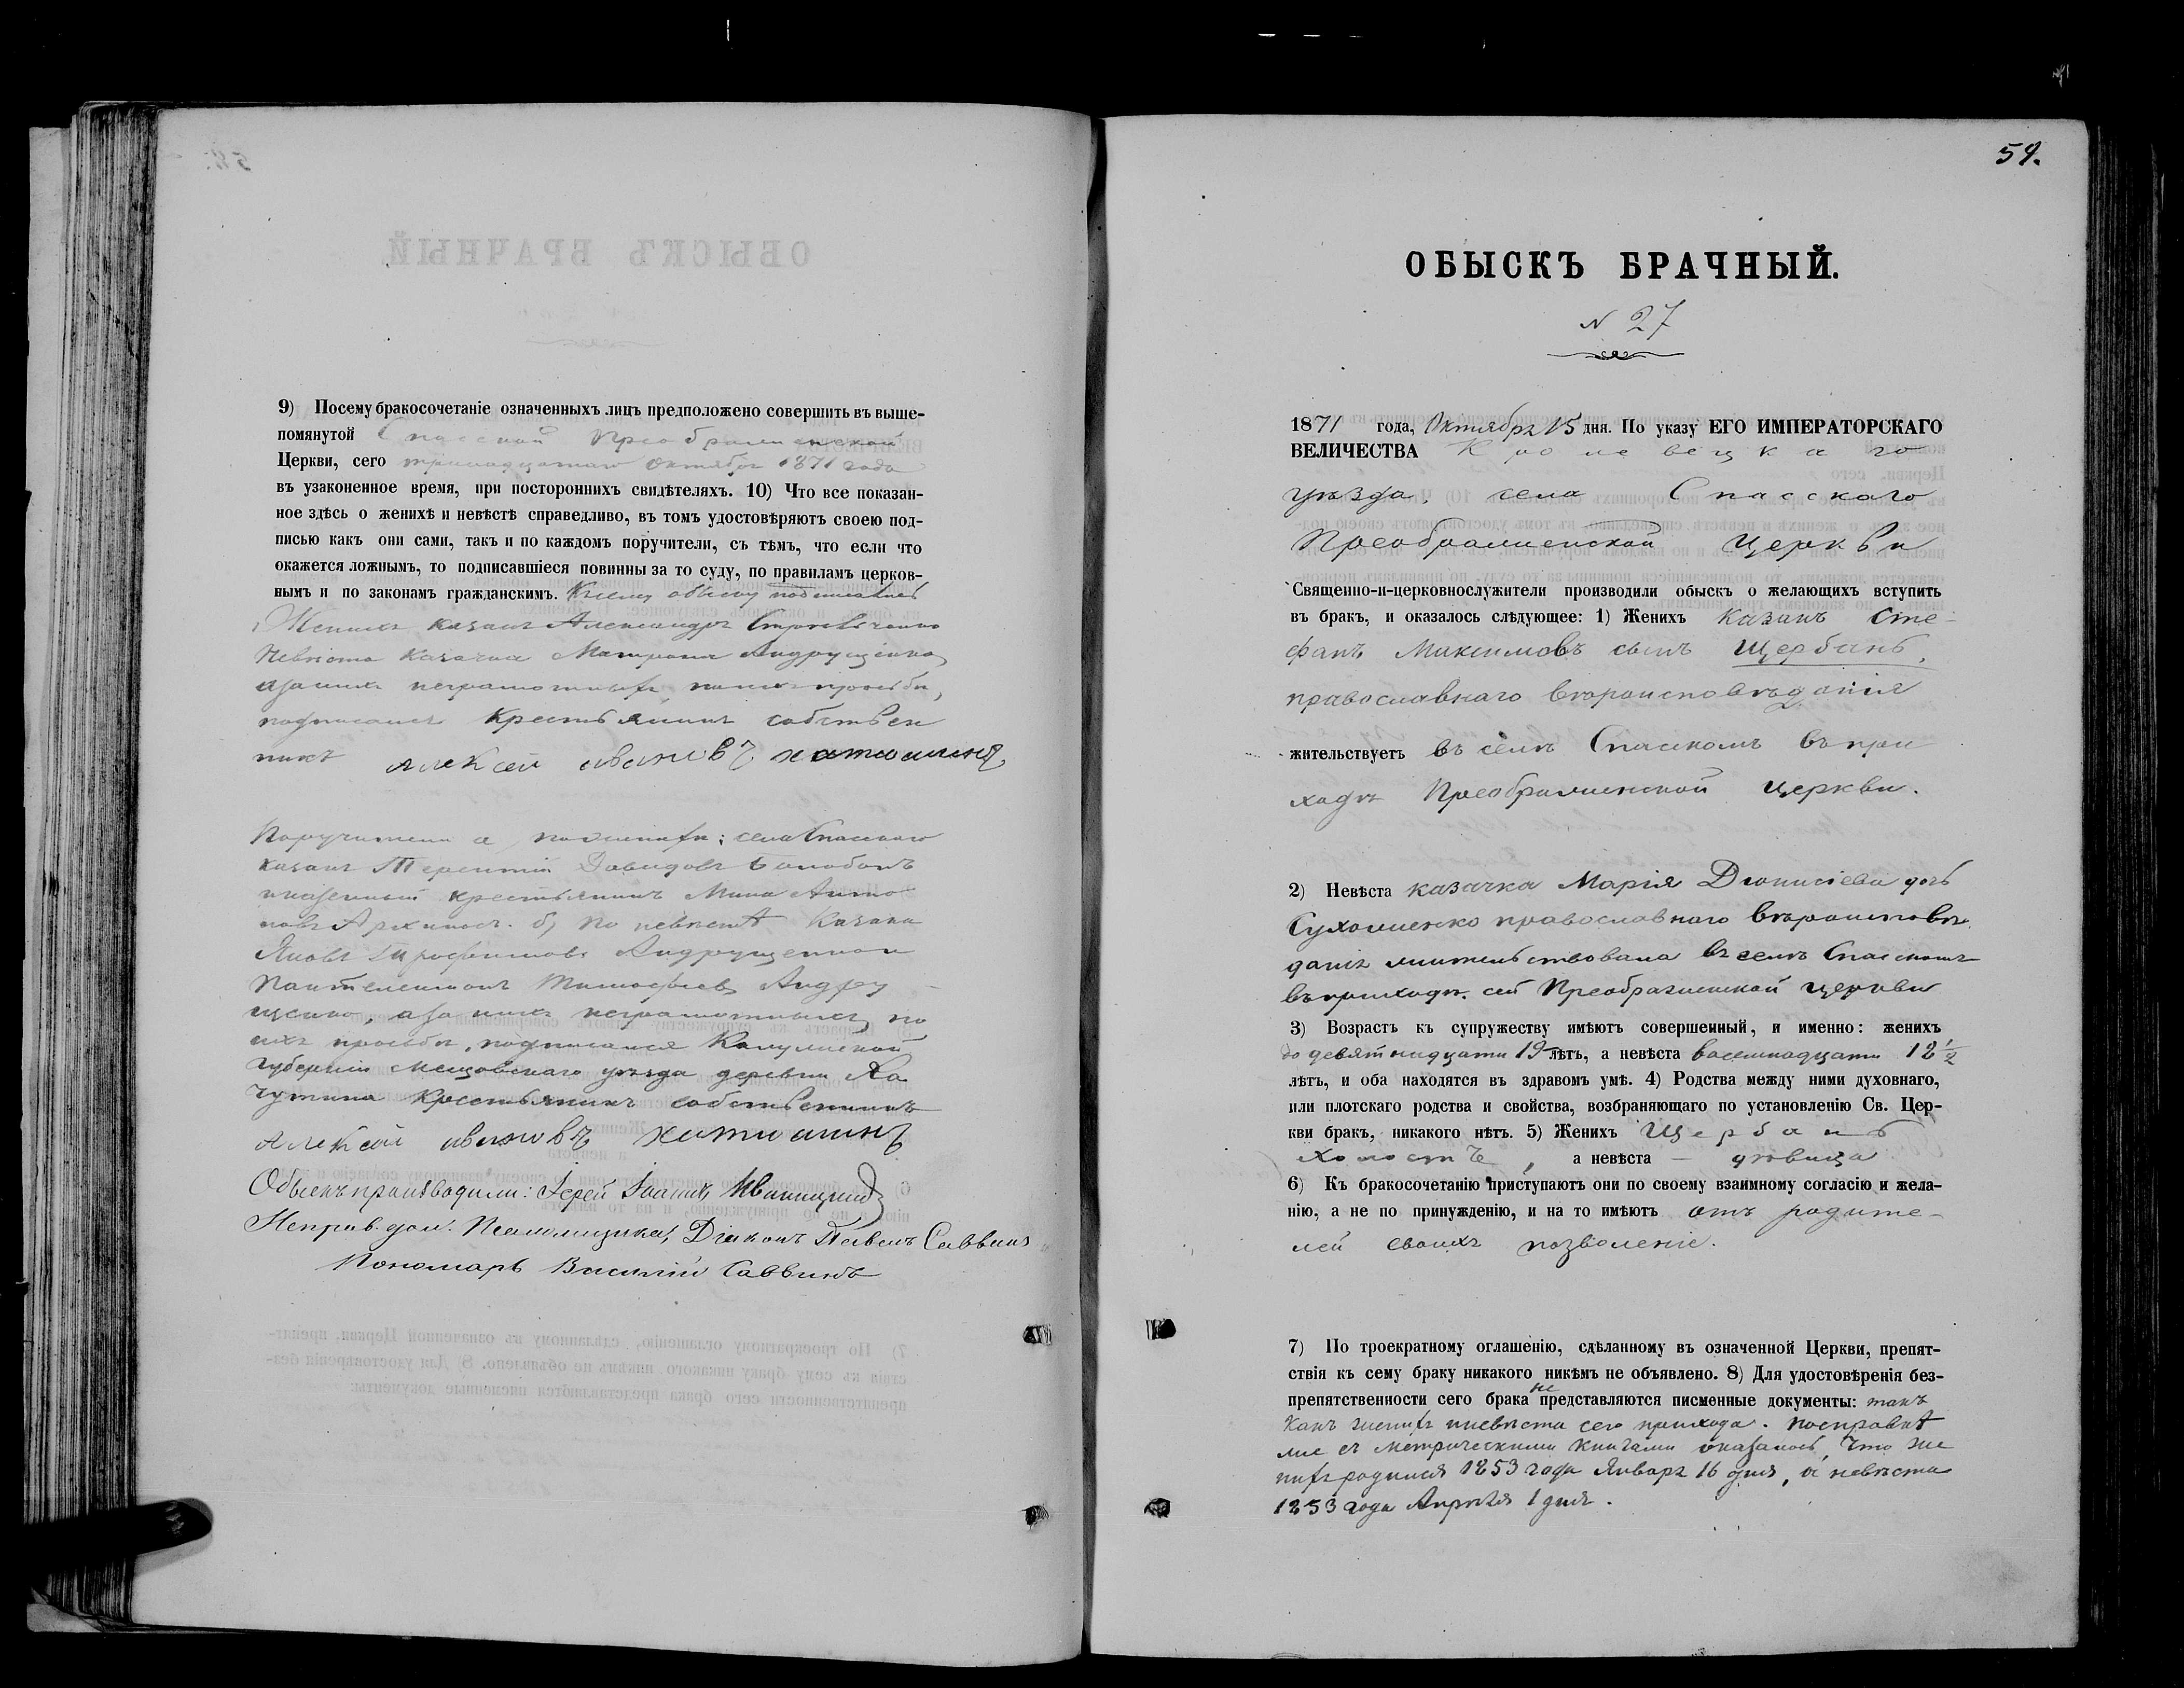 9) Посему бракосочетаніе означенныхъ лицъ предположено совершить въ выше-
помянутой Спасской Преображенской
Церкви, сего тринадцатаго Октября 1871 года
въ узаконенное время, при постороннихъ свидѣтеляхъ. 10) Что все показан-
ное здѣсь о женихѣ и невѣстѣ справедливо, въ томъ удостовѣряютъ своею под-
писью какъ они сами, такъ и по каждомъ поручители, съ тѣмъ, что если что
окажется ложнымъ, то подписавшіеся повинны за то суду, по правиламъ церков-
нымъ и по законамъ гражданскимъ. Ксему обыску подписались
Женихъ казакъ Александръ
Невѣста казачка Матрона Андрущенкова
азанихъ неграмотныхъ, поихъ просьбѣ,
подписался Крестьянинъ собствен
никъ Алексей Ивановъ хатюшинъ
Поручители а, поженихѣ: села Спаскаго
казакъ Терентій Давидовъ
иказенный крестьянинъ Мина Анто
новъ б, по невѣстѣ Казаки
Яковъ Андрущенко и
Пантелеимонъ Тимофѣевъ Андру
щенко, аза нихъ неграмотныхъ, по
ихъ просьбѣ, подписался Калужской
Губерніи Мещовскаго уѣзда деревни Ха
чутина Крестьянинъ собственникъ
Алексей Ивановъ хатюшинъ
Обыскъ производили: Іерей Іоаннъ
Исправ. дол. Псаломщика, Діаконъ Павелъ Саввинъ
Пономарь Василій Саввинъ
54.
ОБЫСКЪ БРАЧНЫЙ.
N 27
1871 года, Октября 15 дня. По указу ЕГО ИМПЕРАТОРСКАГО
ВЕЛИЧЕСТВА Кролевецкаго
уѣзда, села Спасскаго
Преображенской Церкви
Священно-и-церковнослужители производили обыскъ о желающихъ вступить
въ бракъ, и оказалось слѣдующее: 1) Женихъ Казакъ Сте-
фанъ Максимовъ сынъ Щербань,
православнаго вѣроисповѣданія
жительствуетъ въ селѣ Спаскомъ въ при
ходѣ Преображенской Церкви.
2) Невѣста казачка Марія Діонисіева дочь
Сухомленко православнаго вѣроисповѣ
данія жительствовала въ селѣ Спаскомъ
въ приходѣ сей Преображенской церкви
3) Возрастъ къ супружеству имѣютъ совершенный, и именно: женихъ
до девятнадцати 19 лѣтъ, а невѣста восемнадцати 18 1/2
лѣтъ, и оба находятся въ здравомъ умѣ. 4) Родства между ними духовнаго,
или плотскаго родства и свойства, возбраняющаго по установленію Св. Цер-
кви бракъ, никакого нѣтъ. 5) Женихъ Щербань
холостъ, а невѣста — дѣвица
6) Къ бракосочетанію приступаютъ они по своему взаимному согласію и жела-
нію, а не по принужденію, и на то имѣютъ отъ родите-
лей своихъ позволеніе.
7) По троекратному оглашенію, сдѣланному въ означенной Церкви, препят-
ствія къ сему браку никакого никѣмъ не объявлено. 8) Для удостовѣренія без-
препятственности сего брака не представляются писменные документы: такъ
какъ женихъ иневѣста сего прихода. посправкѣ
же съ метрическими книгами оказалось, что же
нихъ родился 1853 года Января 16 дня, а невѣста
1853 года Апрѣля 1 дня.